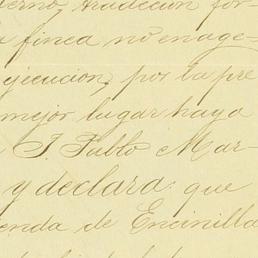 terno, tradición for-
a finca no enage-
ejecucion, por la pre
mejor lugar haya
J. Pablo Mar-
y declara: que
enda de Encinilla